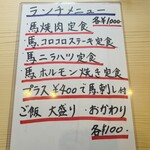 ランチメニュー
各¥1000
・馬焼肉定食
・馬コロコロステーキ定食
・馬ニラハツ定食
・馬ホルモン焼き定食
プラス¥400で馬刺し付
ご飯 大盛り・おかわり
各¥100